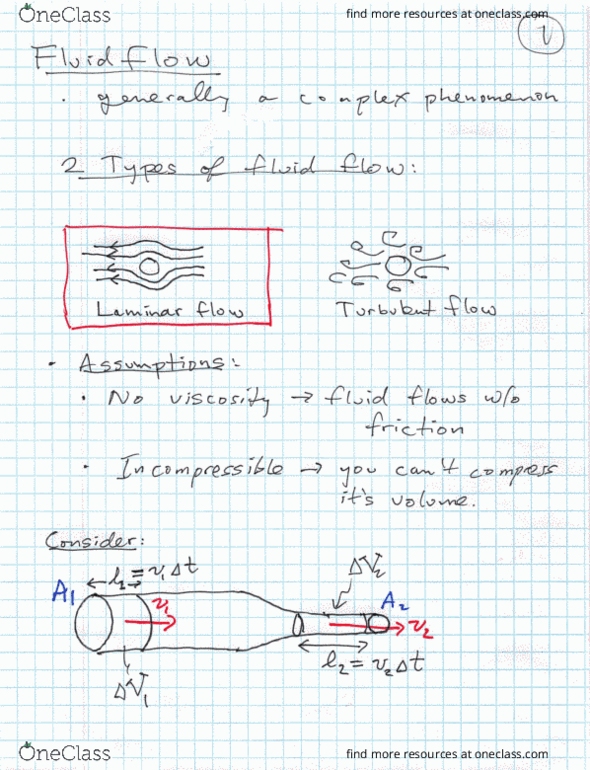 OneClass
find more resources at oneclass.com
1
Fluid flow
· generally a complex phenomenon
2 Types of fluid flow:
Laminar flow
Turbulent flow
· Assumptions:
· No viscosity → fluid flows w/o
friction
· Incompressible → you can't compress
it's volume.
Consider:
l₂ = v₁Δt
ΔV₂
A₁
v₁
A₂
v₂
l₂ = v₂Δt
ΔV₁
OneClass
find more resources at oneclass.com